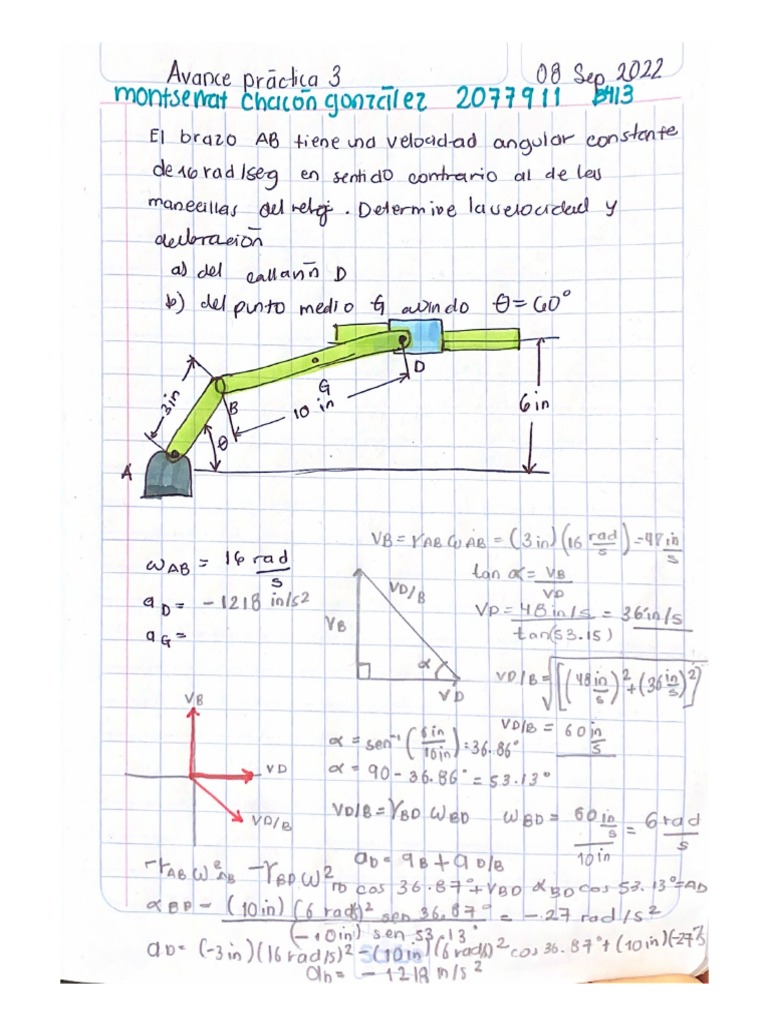 Avance práctica 3
08 Sep 2022
montserrat Chacón gonzález 2077911 B413
El brazo AB tiene una velocidad angular constante
de 16 rad/seg en sentido contrario al de las
manecillas del reloj. Determine la velocidad y
a) del D
b) del punto medio G θ = 60°
3in
B
G
10 in
D
6 in
θ
A
VB = rAB ωAB = (3in)(16 rad/s) = 48 in/s
ωAB = 16 rad/s
tan α = VB/VD
aD = -1218 in/s2
VD = 48in/s / tan(53.15) = 36in/s
aG =
VB
VD/B
α
VD
VD/B = √[(48 in/s)2 + (36 in/s)2]
VD/B = 60 in/s
VB
VD
VD/B
α = sen-1 (6in/10in) = 36.86°
α = 90 - 36.86° = 53.13°
VD/B = rBD ωBD
ωBD = 60 in/s / 10in = 6 rad/s
aD = aB + aD/B
-rAB ω2AB - rBD ω2BD cos 36.87° + rBD αBD cos 53.13° = AD
αBD = (10in)(6 rad/s)2 sen 36.87° / (-10in) sen 53.13° = -27 rad/s2
aD = (-3in)(16 rad/s)2 - (10in)(6 rad/s)2 cos 36.87° + (10in)(-27
aD = -1218 in/s2